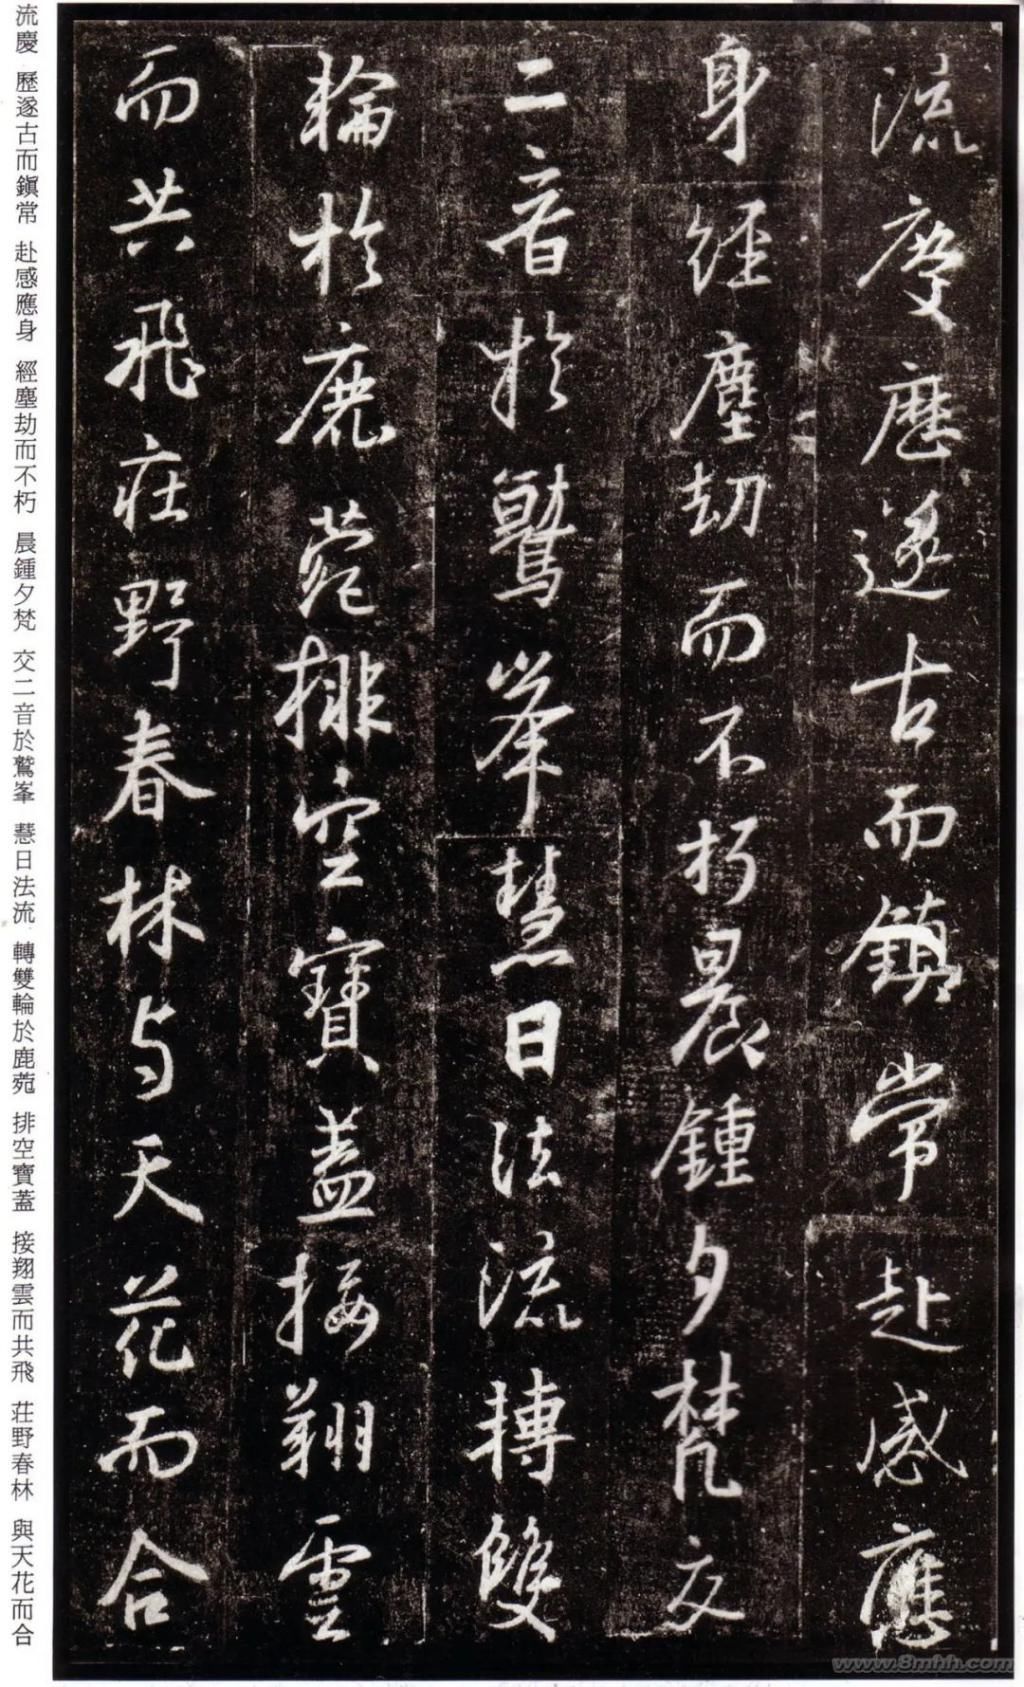 流慶歷遂古而鎮常赴感應
身經塵劫而不朽晨鍾夕梵交
二音於鷲峯慧日法流轉雙
輪於鹿菀排空寶蓋接翔雲
而共飛莊野春林与天花而合
流慶 歷遂古而鎮常 赴感應身 經塵劫而不朽 晨鍾夕梵 交二音於鷲峯 慧日法流 轉雙輪於鹿菀 排空寶蓋 接翔雲而共飛 莊野春林 與天花而合
www.8mhh.com